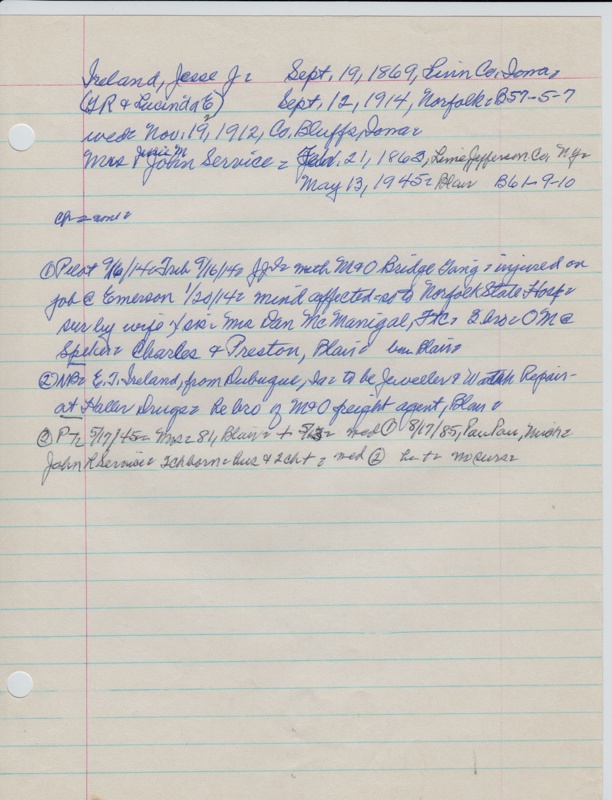 Ireland, Jesse J= Sept. 19, 1869, Linn Co, Iowa=
(J R & Lucinda E) Sept. 12, 1914, Norfolk= B57-5-7
wed= Nov. 19, 1912, Co. Bluffs, Iowa=
Mrs Jessie M John Service= 21, 1863, Lime Jefferson Co, NY=
May 13, 1945= Blair B61-9-10
① Pilot 9/16/14= Trib 9/16/14= J J I= with M&O Bridge Gang= injured on
job @ Emerson 1/20/14= mind affected so to Norfolk State Hosp=
sur by wife & sis= Mrs Dan McManigal, = 2 bros= O M @
Charles & Preston, Blair= bur Blair=
② E. J. Ireland, from Dubuque, Ia= to be Jeweler & Watch Repair-
at Haller Drugs= He bro of M&O freight agent, Blair=
③ P-T= 5/17/45= Mrs= 81, Blair= + 5/13= wed ① 8/17/85, Paw Paw, Mich=
John R Service= 2 ch born= hus & 2 ch += wed ② =